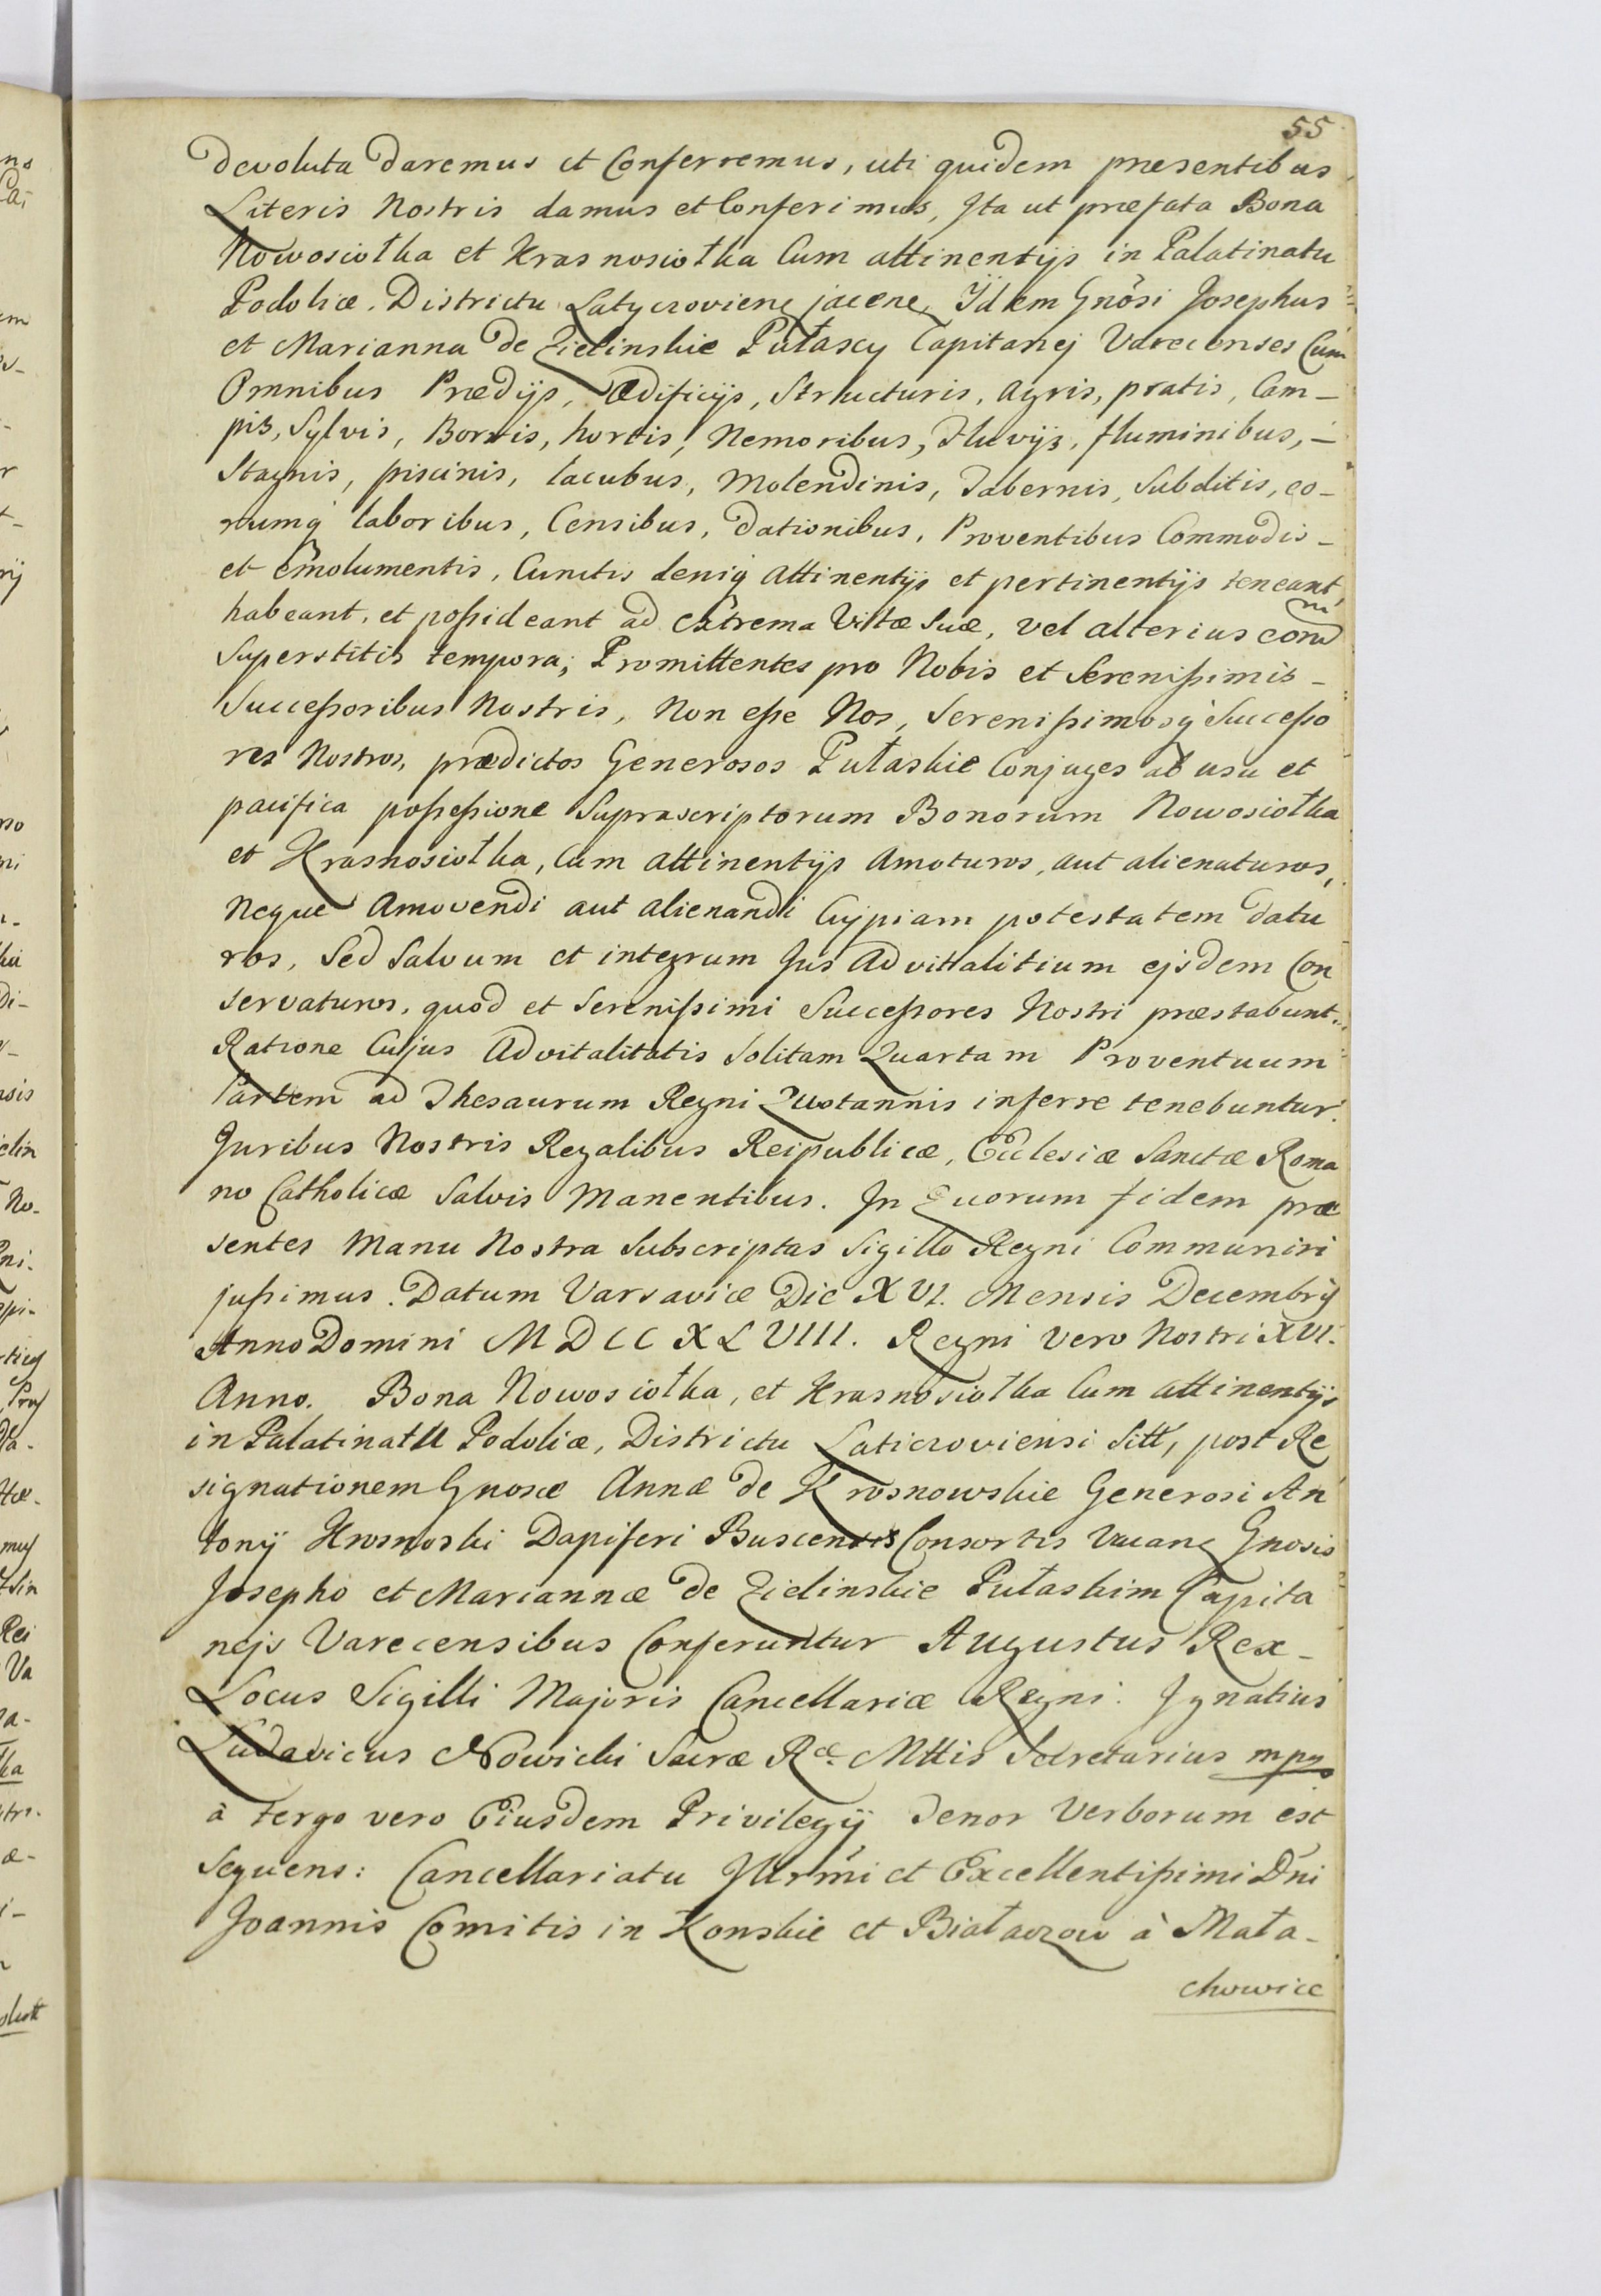 55
devoluta daremus et Conferremus, uti quidem præsentibus
Literis Nostris damus et Conferimus, Ita ut præfata Bona
Nowosiołka et Krasnosiołka Cum attinentijs in Palatinatu
Podoliæ. Districtu Latyczovienę jacenę Ijdem Gnosi Josephus
et Marianna de Zielinskie Pułascy Capitanej Varecenses Cum
Omnibus Prædijs, Ædificijs, Structuris, Agris, pratis, Cam-
pis, Sylvis, Borris, hortis, Nemoribus, Fluvijs, fluminibus, -
Stagnis, piscinis, lacubus, Molendinis, Tabernis, Subditis, eo-
rumq laboribus, Censibus, dationibus, Proventibus Commodis -
et Emolumentis, Cunctis deniq Attinentijs et pertinentijs teneant,
habeant, et possideant ad extrema Vitæ Suæ, vel alterius eorum
Superstitis tempora; Promittentes pro Nobis et Serenissimis -
Successoribus Nostris, Non esse Nos, Serenissimosq Successo
res Nostros, prædictos Generosos Pułaskie Conjuges ab usu et
pacifica possessione Suprascriptorum Bonorum Nowosiołka
et Krasnosiołka, Cum attinentijs Amoturos, aut alienaturos,
Neque Amovendi aut alienandi Cujpiam potestatem datu
ros, Sed Salvum et integrum Jus Advitalitium ejsdem Con
servaturos, quod et Serenissimi Successores Nostri præstabunt.
Ratione Cujus Advitalitatis Solitam Quartam Proventuum
Partem ad Thesaurum Regni Quotannis inferre tenebuntur.
Juribus Nostris Regalibus Reipublicæ, Ecclesiæ Sanctæ Roma
no Catholicæ Salvis Manentibus. In Quorum fidem præ
sentes Manu Nostra Subscriptas Sigillo Regni Communiri
jussimus. Datum Varsaviæ Die XVI. Mensis Decembrij
Anno Domini MDCCXLVIII. Regni Vero Nostri XVI.
Anno. Bona Nowosiołka, et Krasnosiołka Cum attinentijs
in Palatinatu Podoliæ, Districtu Laticzoviensi Sitt, post Re
signationem Gnosæ Annæ de Krosnowskie Generosi An
tonij Krosnoski Dapiferi Buscensis Consortis Vacanę Gnosis
Josepho et Mariannæ de Zielinskie Pułaskim Capita
nejs Varecensibus Conferuntur Augustus Rex -
Locus Sigilli Majoris Cancellariæ Regni. Ignatius
Ludavicus Nowicki Sacræ Ræ. Mttis Secretarius mpp
à tergo vero Eiusdem Privilegij Tenor Verborum est
Sequens: Cancellariatu Illrmi et Excellentissimi Dni
Joannis Comitis in Konskie et Białaczow à Mała-
chowice